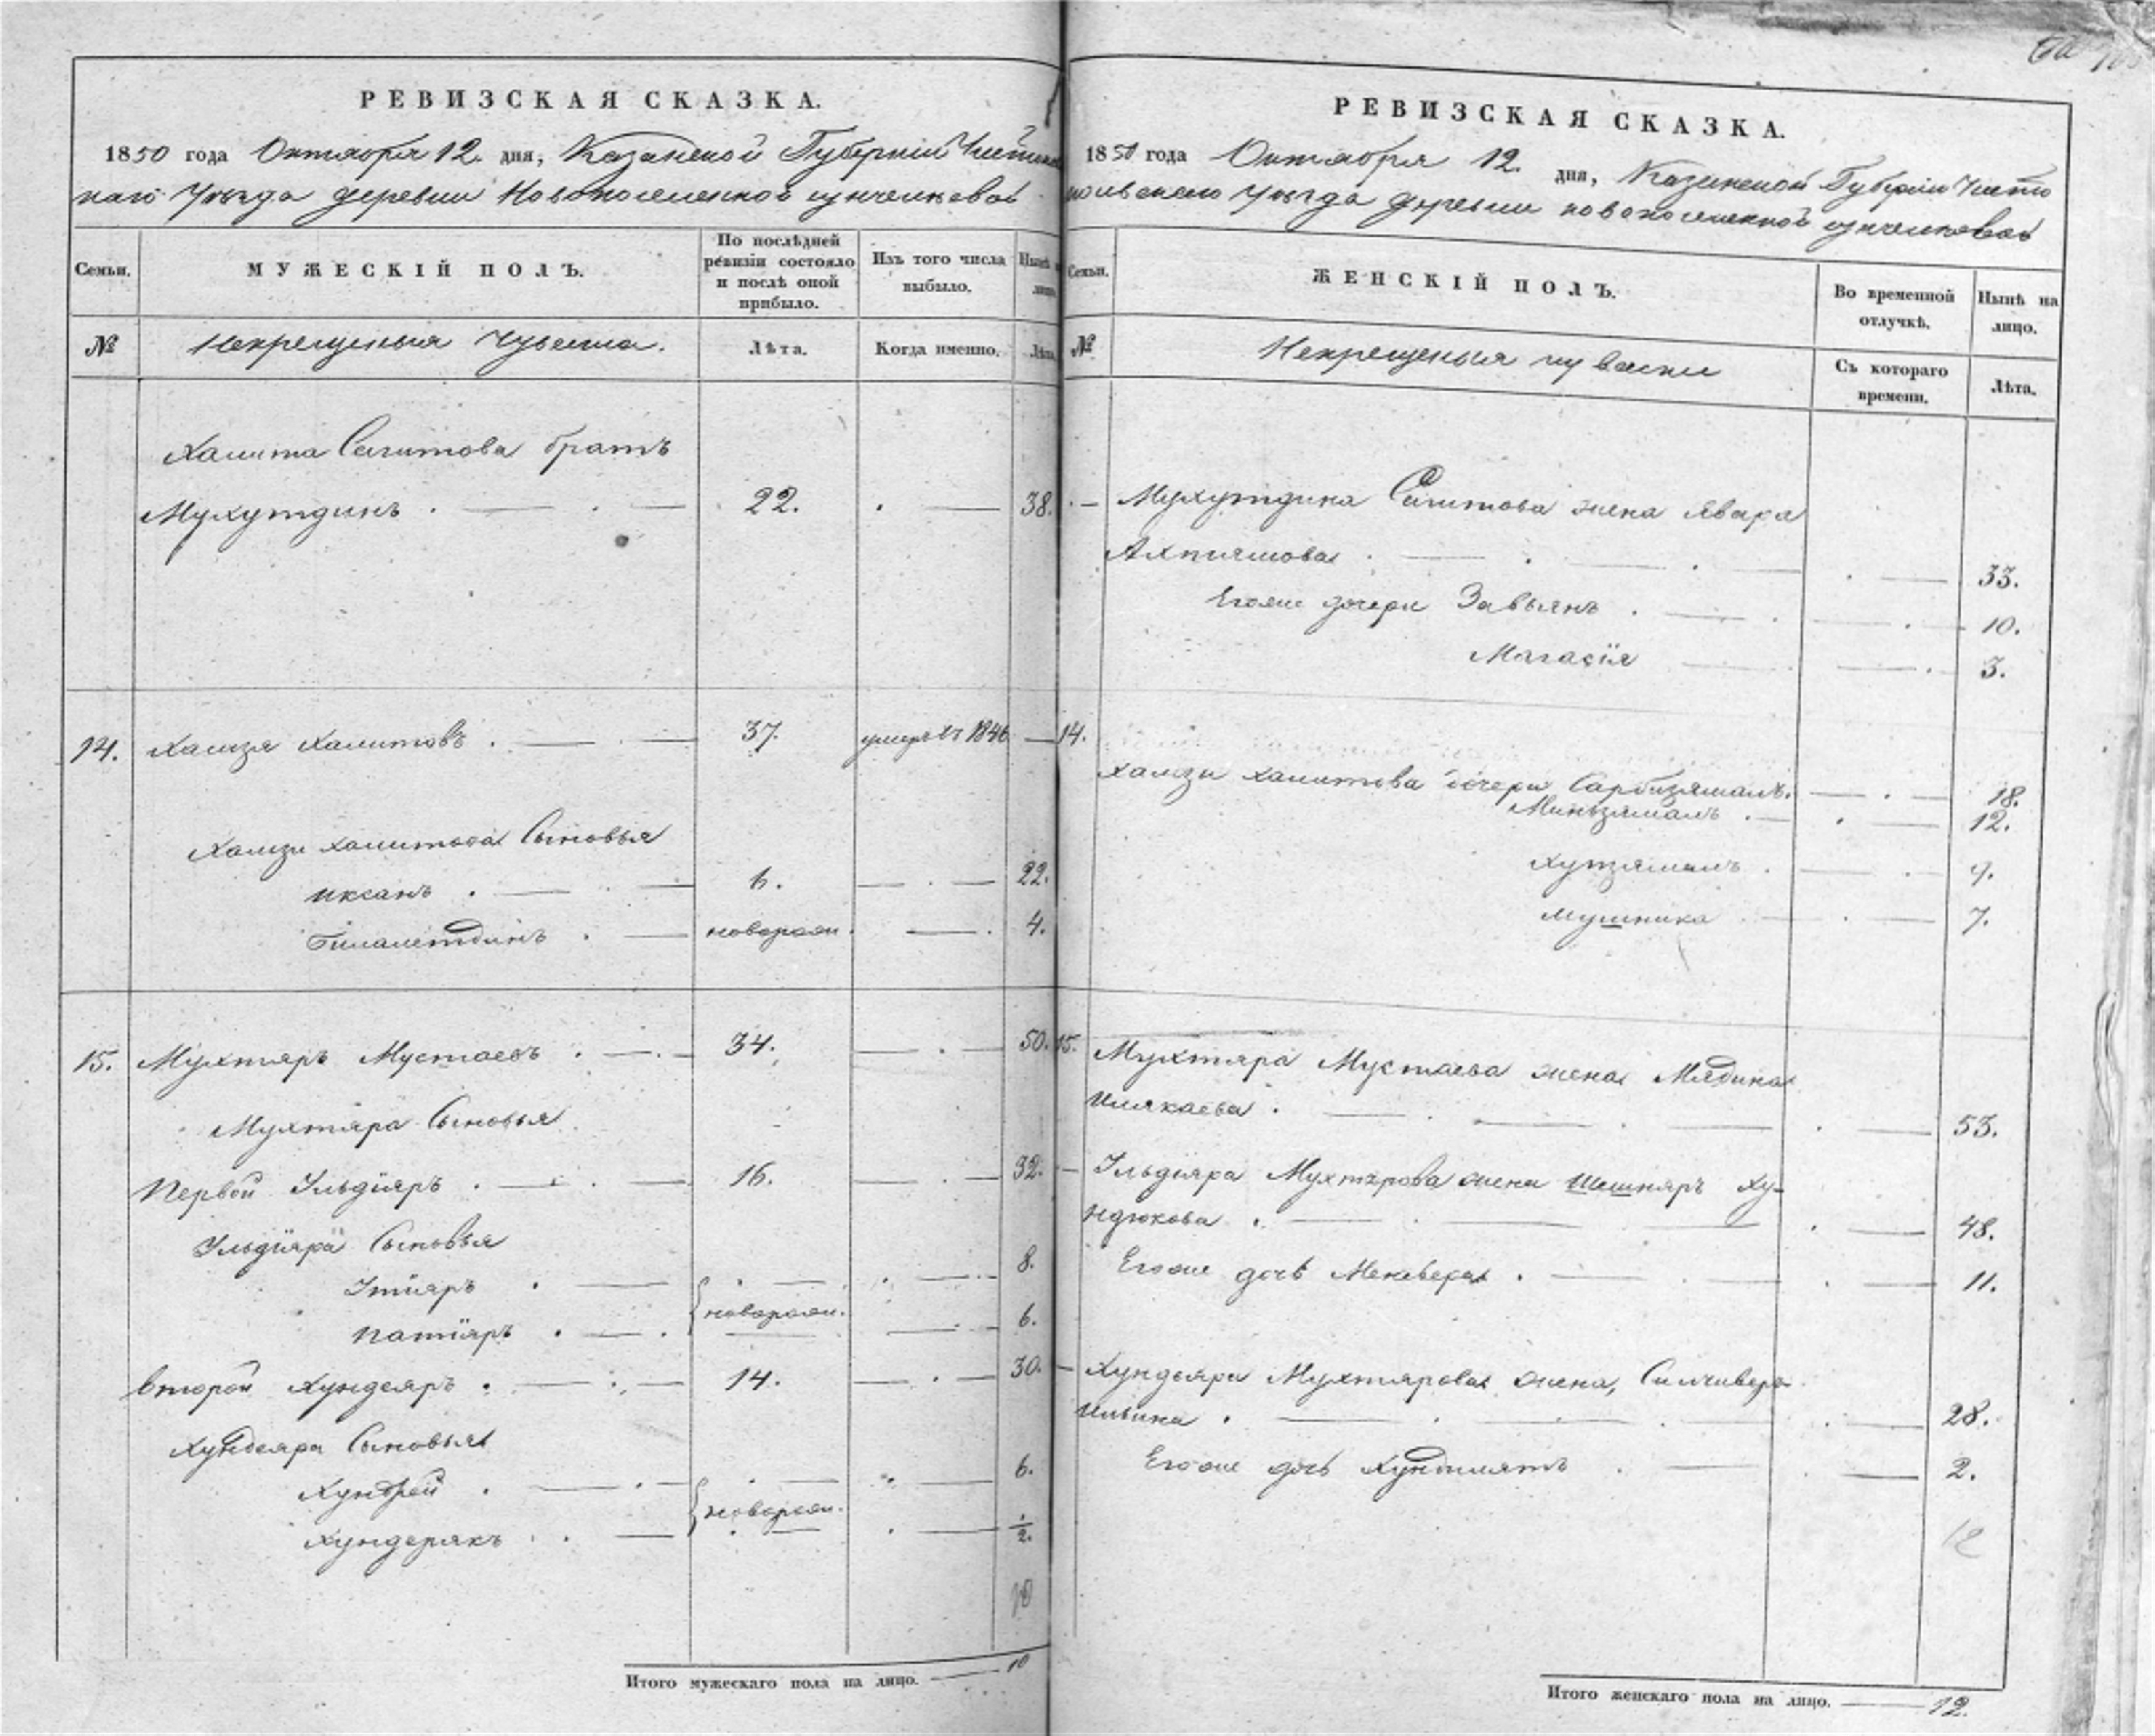 РЕВИЗСКАЯ СКАЗКА.
1850 года Октября 12. дня, Казанской Губернiи Чисто
каго Уѣзда деревни Новопоселенной
Семьи. МУЖЕСКІЙ ПОЛЪ. По послѣдней ревизіи состояло и послѣ оной прибыло. Изъ того числа выбыло. Нынѣ
№ Некрещеныя Чуваша. Лѣта. Когда именно. Лѣта
Хамита Сагитова братъ
Мухутдинъ 22. 38.
14. Хамзя Хамитовъ 37. умеръ въ 1846
Хамзи Хамитова Сыновья
Иксанъ 6. 22.
Гилалетдинъ новорож. 4.
15. Мухтяръ Мустаевъ 34. 50.
Мухтяра Сыновья
Первой Ульдіяръ 16. 32.
Ульдіяра Сыновья
Утіяръ 8.
новорож.
Патіяръ 6.
второй Хундеяръ 14. 30.
Хундеяра Сыновья
Хундрей 6.
новорож.
Хундерякъ 1/2.
10
Итого мужескаго пола на лицо. 10
РЕВИЗСКАЯ СКАЗКА.
1850 года Октября 12. дня, Казанской Губернiи Чисто
польскаго Уѣзда деревни новопоселенной
Семьи. ЖЕНСКІЙ ПОЛЪ. Во временной отлучкѣ. Нынѣ на лицо.
№ Некрещеныя чуваски Съ котораго времени. Лѣта.
Мухутдина Сагитова жена Явара
33.
Егоже дочери Завьянъ 10.
Магасія 3.
14.
Хамзи Хамитова дочери Сарбизямалъ. 18.
Миньзямалъ 12.
Хутзямалъ 9.
Мушника 7.
15. Мухтяра Мустаева жена Мядина
Илякаева 53.
Ульдіяра Мухтярова жена Шешняръ Ху-
ндюкова 48.
Егоже дочь Меневера 11.
Хундеяра Мухтярова жена, Силчивере
Ильина 28.
Егоже дочь Хундилятъ 2.
12
Итого женскаго пола на лицо. 12.